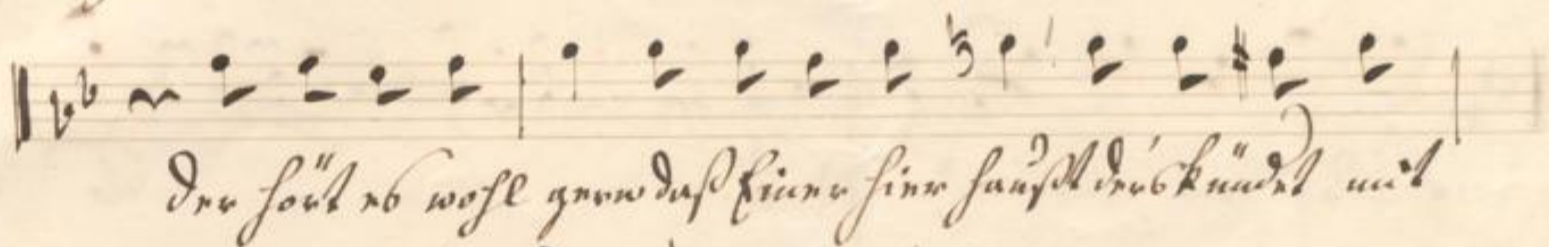 der hört es wohl gern daß Einer hier haußt der's kündet mit